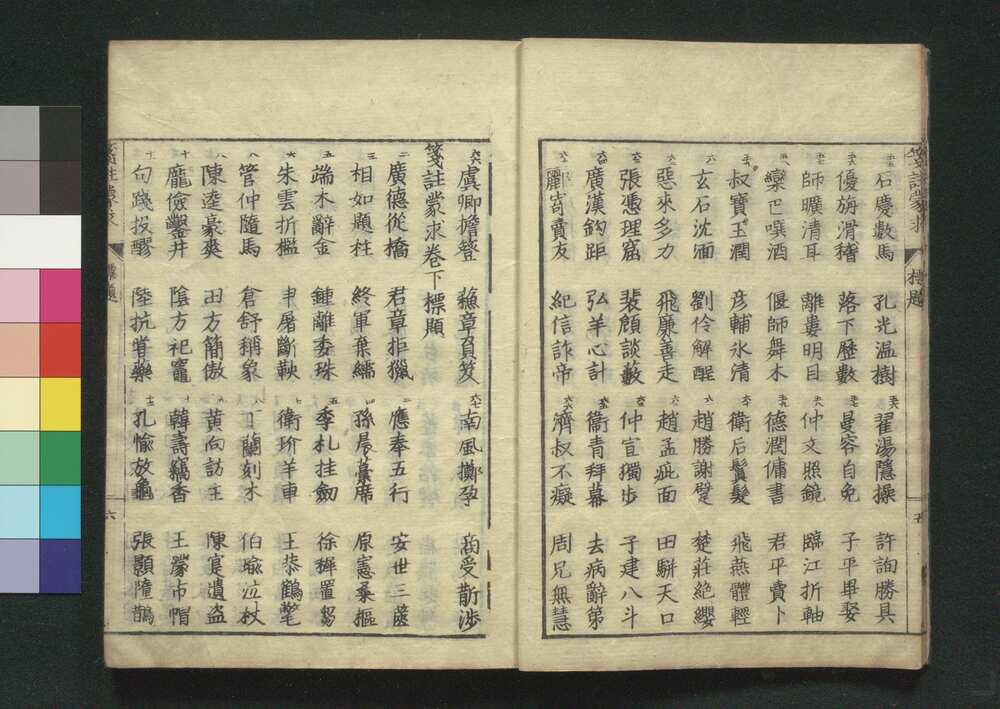 石慶數馬 孔光温樹 翟湯隱操 許詢勝具
優旃滑稽 落下歷數 曼容自免 子平畢娶
師曠清耳 離婁明目 仲文照鏡 臨江折軸
欒巴噀酒 偃師舞木 德潤傭書 君平賣卜
叔寶玉潤 彦輔氷清 衛后鬒髮 飛燕體輕
玄石沈湎 劉伶解酲 趙勝謝躄 楚莊絶纓
惡來多力 飛廉善走 趙孟疵面 田駢天口
張憑理窟 裴頠談藪 仲宣獨步 子建八斗
廣漢鈎距 弘羊心計 衛青拜幕 去病辭第
酈寄賣友 紀信詐帝 濟叔不癡 周兄無慧
虞卿擔簦 蘇章負笈 南風擲孕 商受斮涉
箋註蒙求卷下標題
廣德從橋 君章拒獵 應奉五行 安世三篋
相如題柱 終軍棄繻 孫晨藁席 原憲桑樞
端木辭金 鍾離委珠 季札挂劔 徐穉置芻
朱雲折檻 申屠斷鞅 衛玠羊車 王恭鶴氅
管仲隨馬 倉舒稱象 丁蘭刻木 伯瑜泣杖
陳逵豪爽 田方簡傲 黄向訪主 陳寔遺盗
龐儉鑿井 陰方祀竈 韓壽竊香 王濛市帽
句踐投醪 陸抗嘗藥 孔愉放龜 張顥墮鵲
箋註蒙求 標題 五
箋註蒙求 標題 六